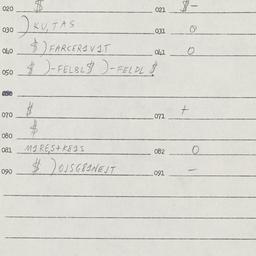 020 $ 021 $-
030 ) KU, TAS 031 0
040 $ ) FARCER1V1T 041 0
050 $ )-FELBL$ )-FELDL $
070 $ 071 +
080 $
081 M1RES+KE1S 082 0
090 $ ) 091 -